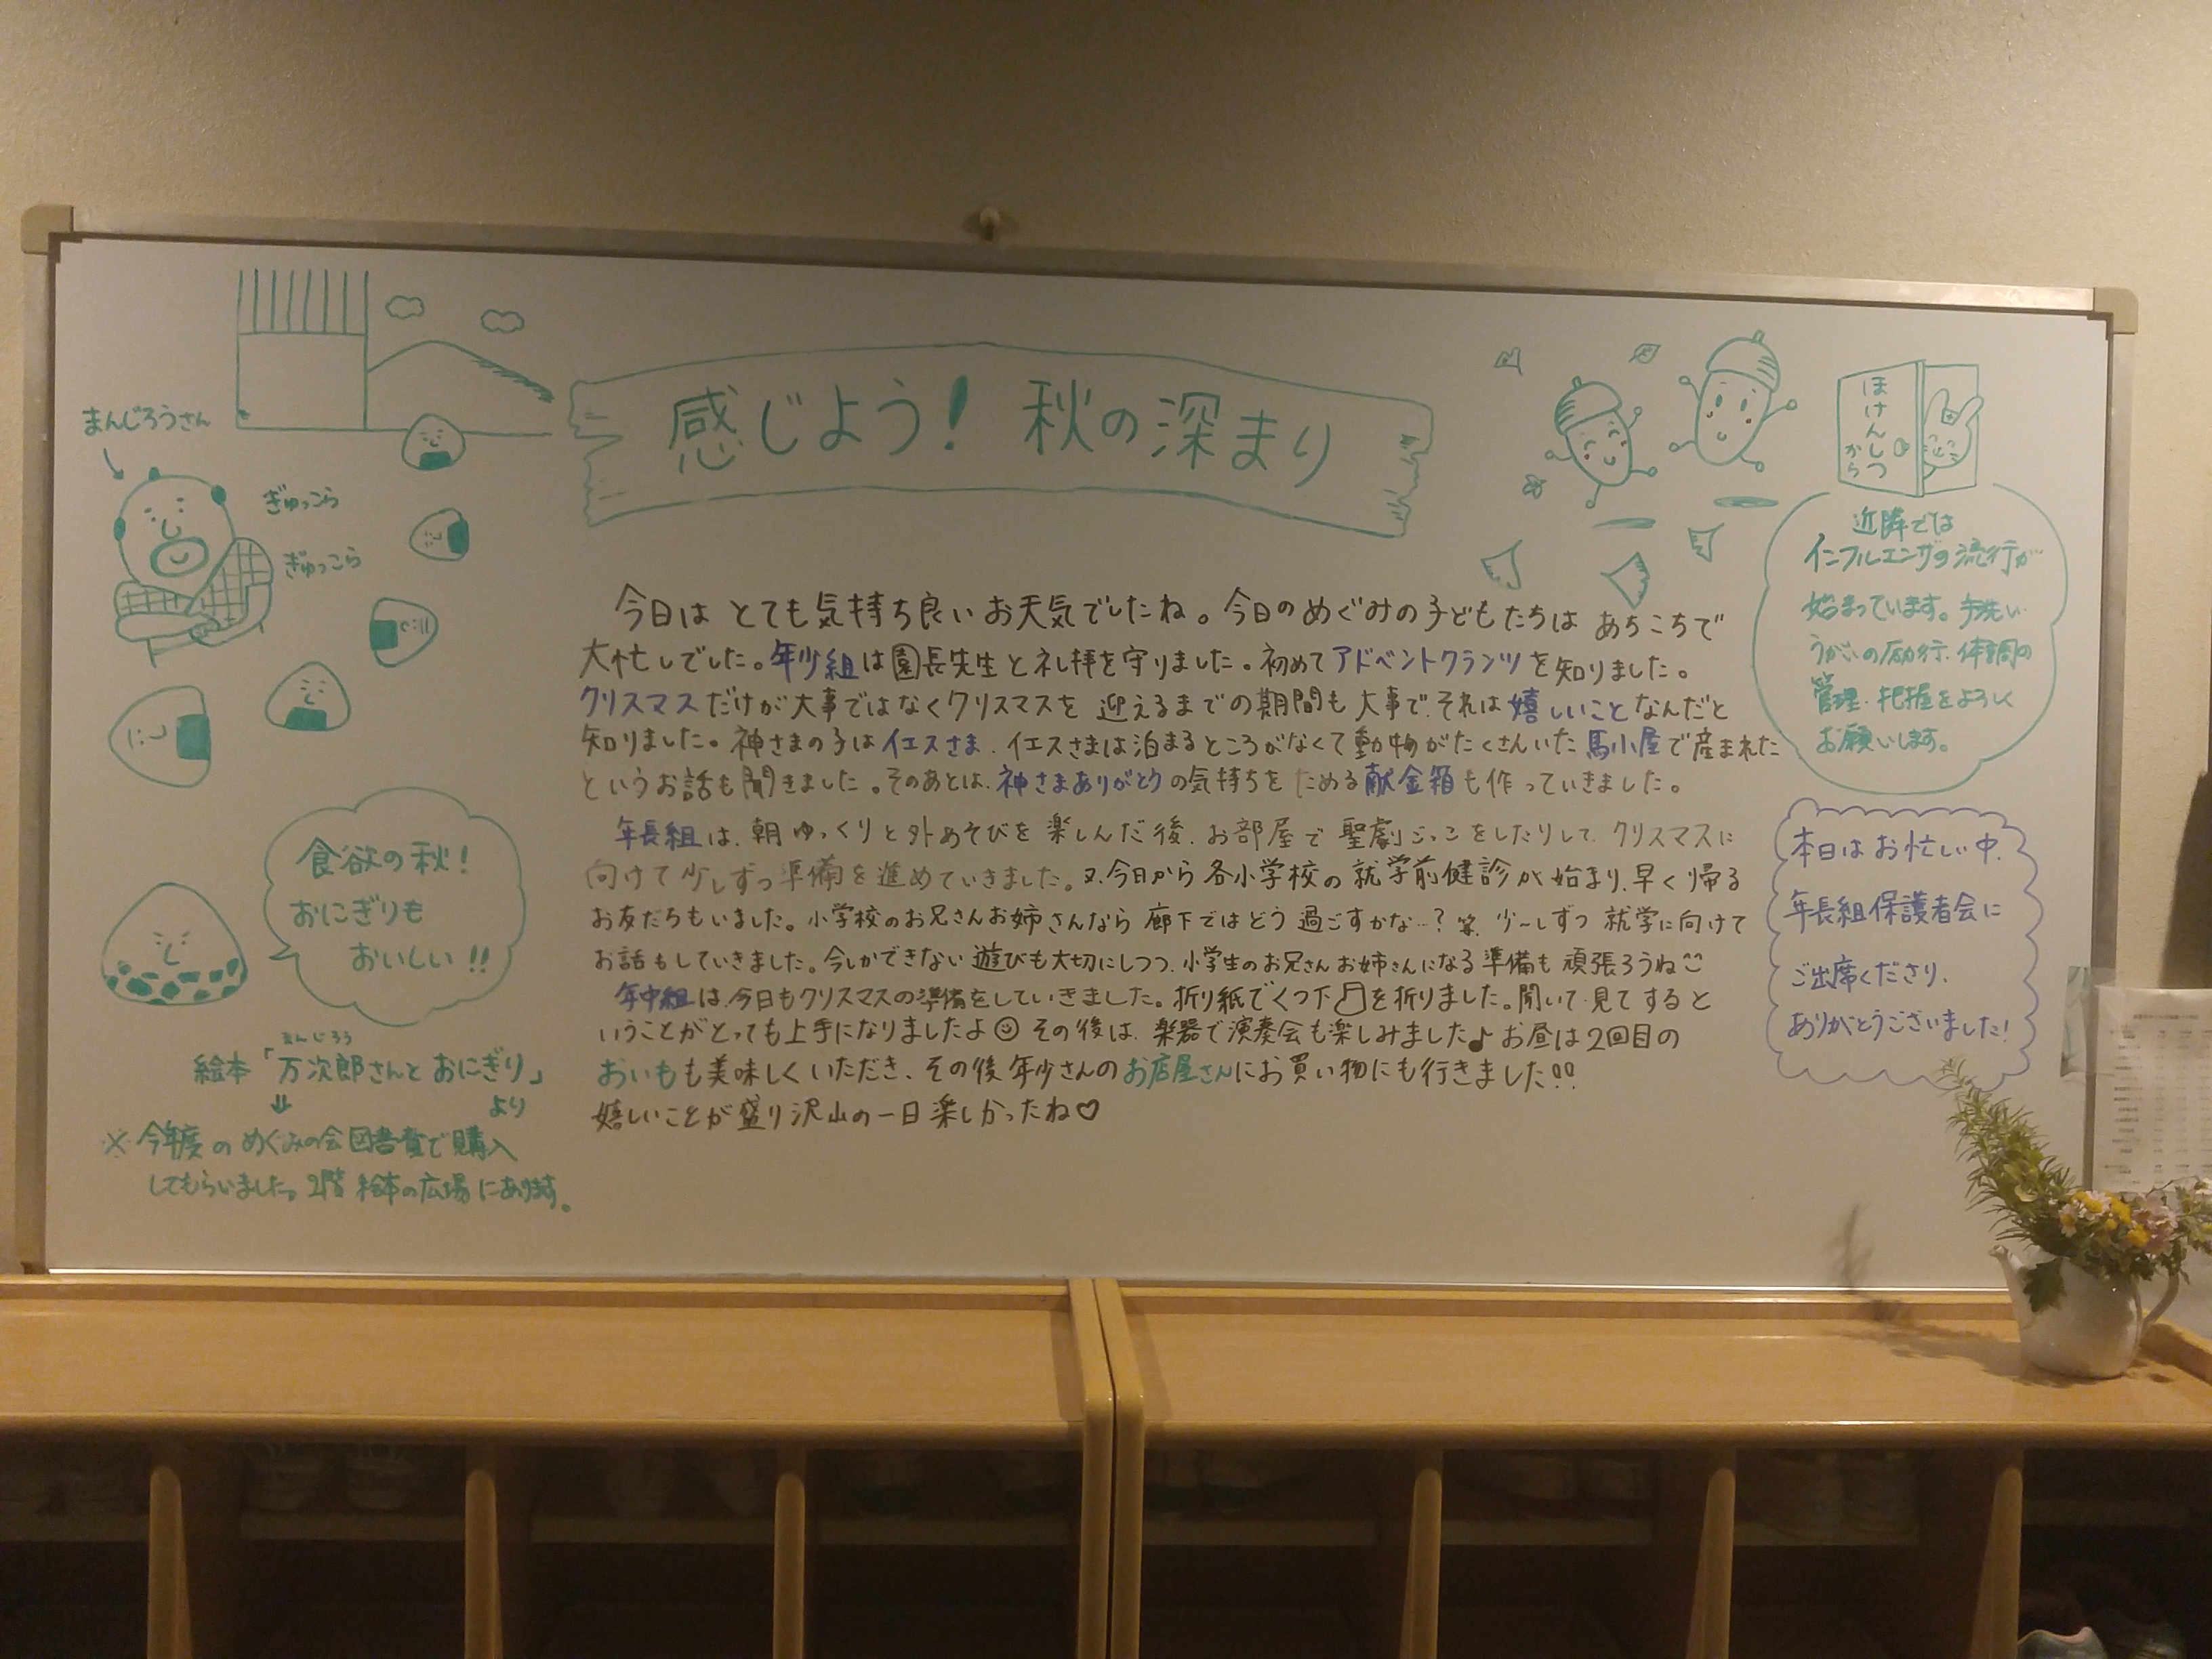 感じよう! 秋の深まり
まんじろうさん
ぎゅっこら
ぎゅっこら
食欲の秋!
おにぎりも
おいしい!!
まんじろう
絵本「万次郎さんと おにぎり」
より
※ 今年度の めぐみの会図書費で購入
してもらいました。2階 絵本の広場 にあります。
今日は とても気持ち良い お天気でしたね。今日のめぐみの子どもたちは あちこちで
大忙しでした。年少組は園長先生と礼拝を守りました。初めてアドベントクランツを知りました。
クリスマスだけが大事ではなくクリスマスを 迎えるまでの期間も大事で、それは嬉しいことなんだと
知りました。神さまの子はイエスさま、イエスさまは泊まるところがなくて動物がたくさんいた馬小屋で産まれた
というお話も聞きました。そのあとは、神さまありがとうの気持ちをためる献金箱も作っていきました。
年長組は、朝ゆっくりと外あそびを楽しんだ後、お部屋で聖劇ごっこをしたりして、クリスマスに
向けて少しずつ準備を進めていきました。又、今日から各小学校の就学前健診が始まり、早く帰る
お友だちもいました。小学校のお兄さんお姉さんなら廊下ではどう過ごすかな…? 笑、少〜しずつ 就学に向けて
お話もしていきました。今しかできない遊びも大切にしつつ、小学生のお兄さんお姉さんになる準備も頑張ろうね
年中組は、今日もクリスマスの準備をしていきました。折り紙でくつ下を折りました。開いて見てすると
いうことがとっても上手になりましたよ その後は、楽器で演奏会も楽しみました♪お昼は2回目の
おいもも美味しくいただき、その後年少さんのお店屋さんにお買い物にも行きました!!
嬉しいことが盛り沢山の一日楽しかったね♡
ほけんしつ
から
近隣では
インフルエンザの流行が
始まっています。手洗い
うがいの励行、体調の
管理・把握をよろしく
お願いします。
本日はお忙しい中、
年長組保護者会に
ご出席くださり、
ありがとうございました!